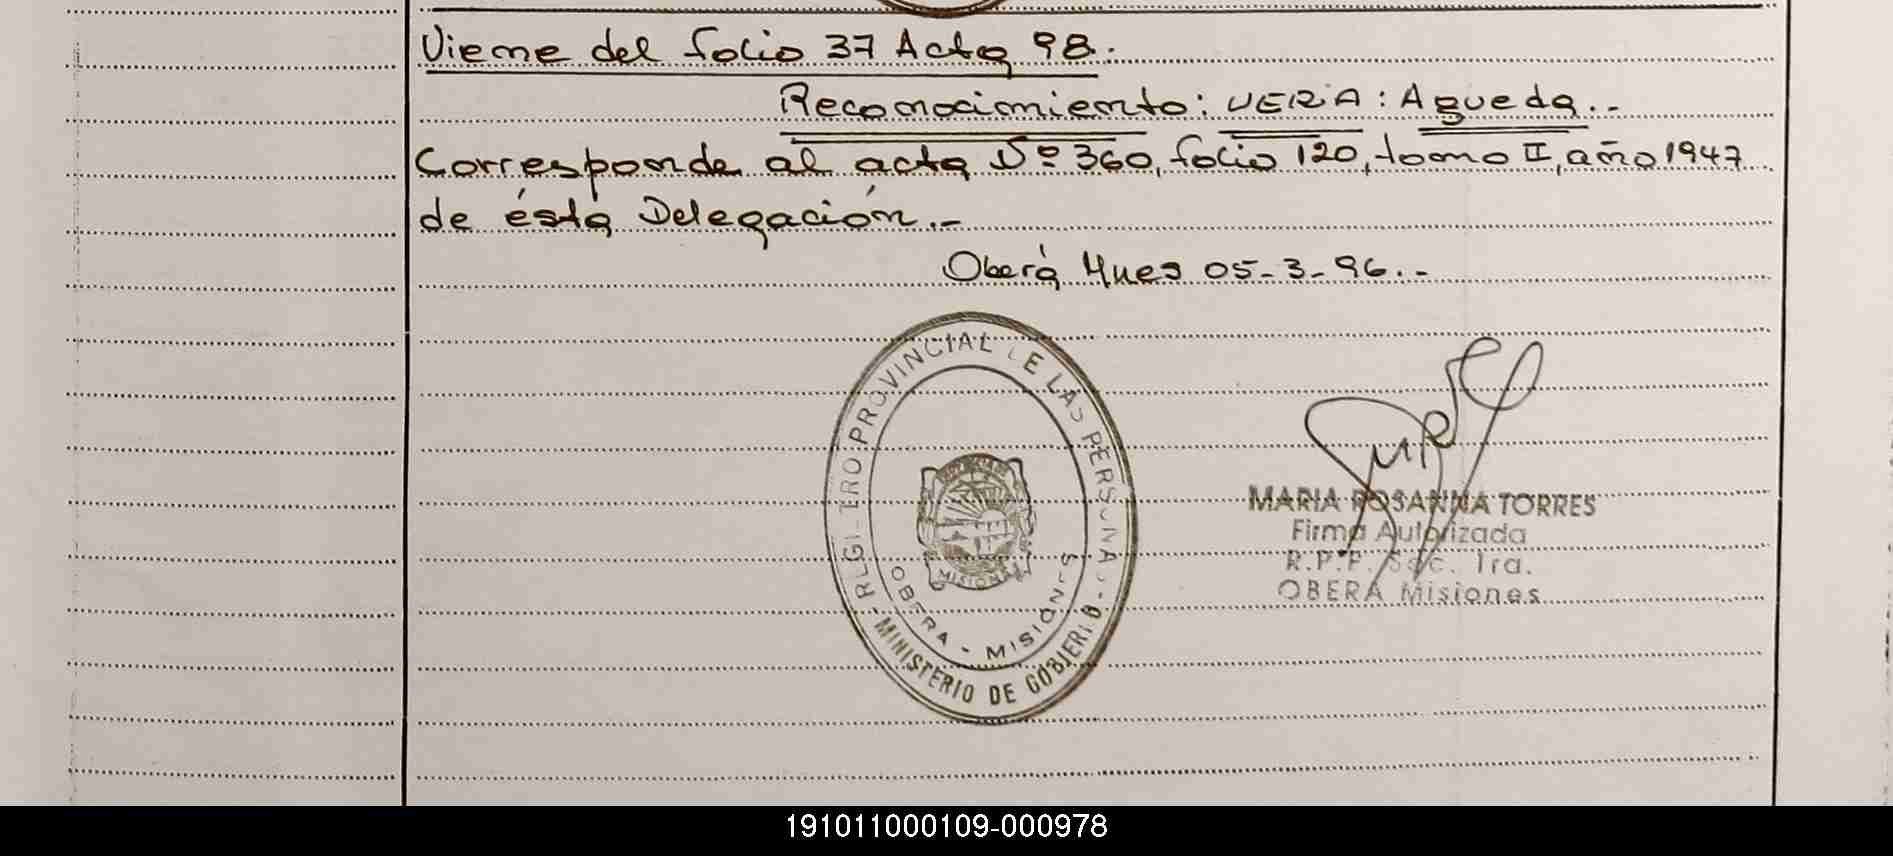 Viene del folio 37 Acta 98.
Reconocimiento: VERA: Agueda.-
Corresponde al acta Nº 360, folio 120, tomo II, año 1947
de ésta Delegación.-
Oberá Mnes 05-3-96.-
REGISTRO PROVINCIAL DE LAS PERSONAS
OBERA - MISIONES
MISIONES
MINISTERIO DE GOBIERNO
MARIA ROSANNA TORRES
Firma Autorizada
R.P.P. Sec. 1ra.
OBERA Misiones
191011000109-000978